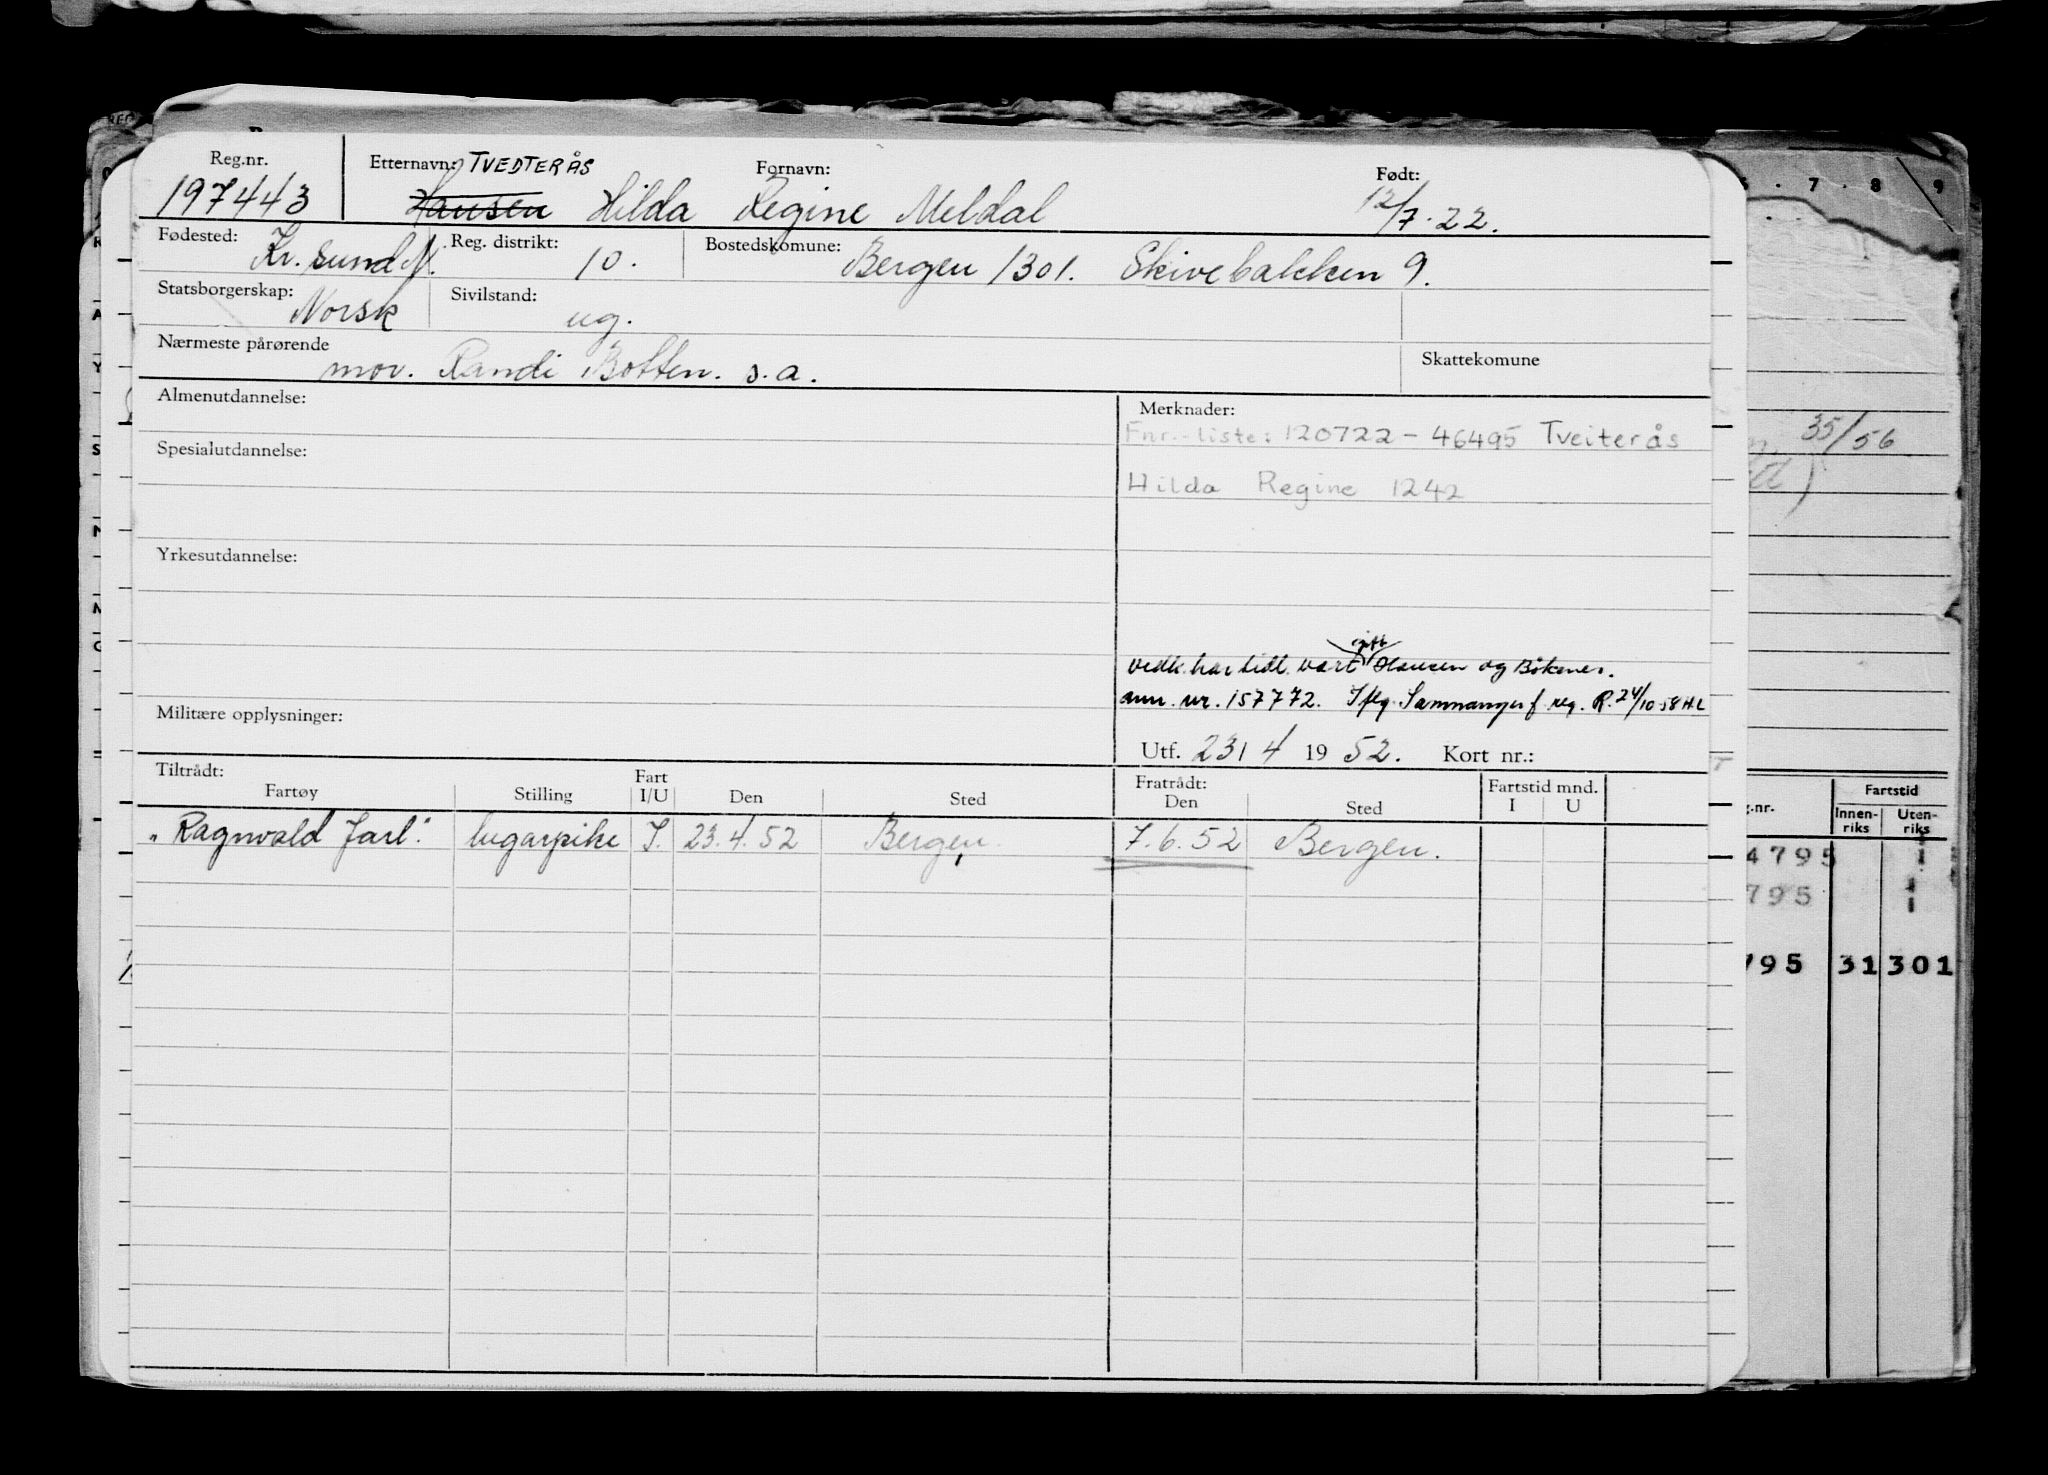 Reg.nr. Etternavn: TVEDTERÅS Fornavn: Født:
197443 Hansen Hilda Regine Meldal 12/7.22.
Fødested: Kr. sund N. Reg. distrikt: 10. Bostedskomune: Bergen 1301. Skivebakken 9.
Statsborgerskap: Norsk Sivilstand: ug.
Nærmeste pårørende mor. Randi Botten. s.a. Skattekomune
Almenutdannelse:
Spesialutdannelse:
Yrkesutdannelse:
Militære opplysninger:
Merknader:
Fnr.-liste: 120722-46495 Tveiterås
Hilda Regine 1242
gift
vedk. har tidl. vært Hansen og
nr. 157772. Iflg. Samnanger f. reg. R. 24/10 58 H.L
Utf. 23/4 1952. Kort nr.:
Tiltrådt: Fart Fratrådt: Fartstid mnd.
Fartøy Stilling I/U Den Sted Den Sted I U
"Ragnvald Jarl". lugarpike I. 23.4.52 Bergen. 7.6.52 Bergen.
7 8 9
35/56
Fartstid
g.nr. Innen-riks Uten-riks
4795
795
795 31 301